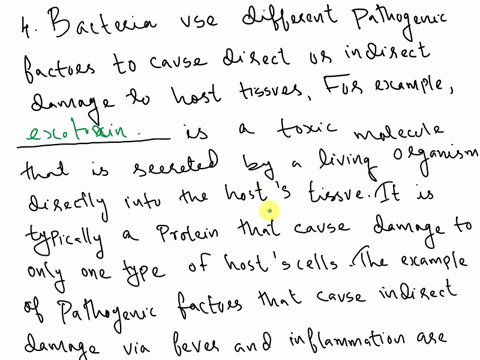 4. Bacteria use different Pathogenic
factors to cause direct or indirect
damage to host tissues. For example,
exotoxin is a toxic molecule
that is secreted by a living organism
directly into the host's tissue. It is
typically a Protein that cause damage to
only one type of host's cells. The example
of Pathogenic factors that cause indirect
damage via fever and inflammation are